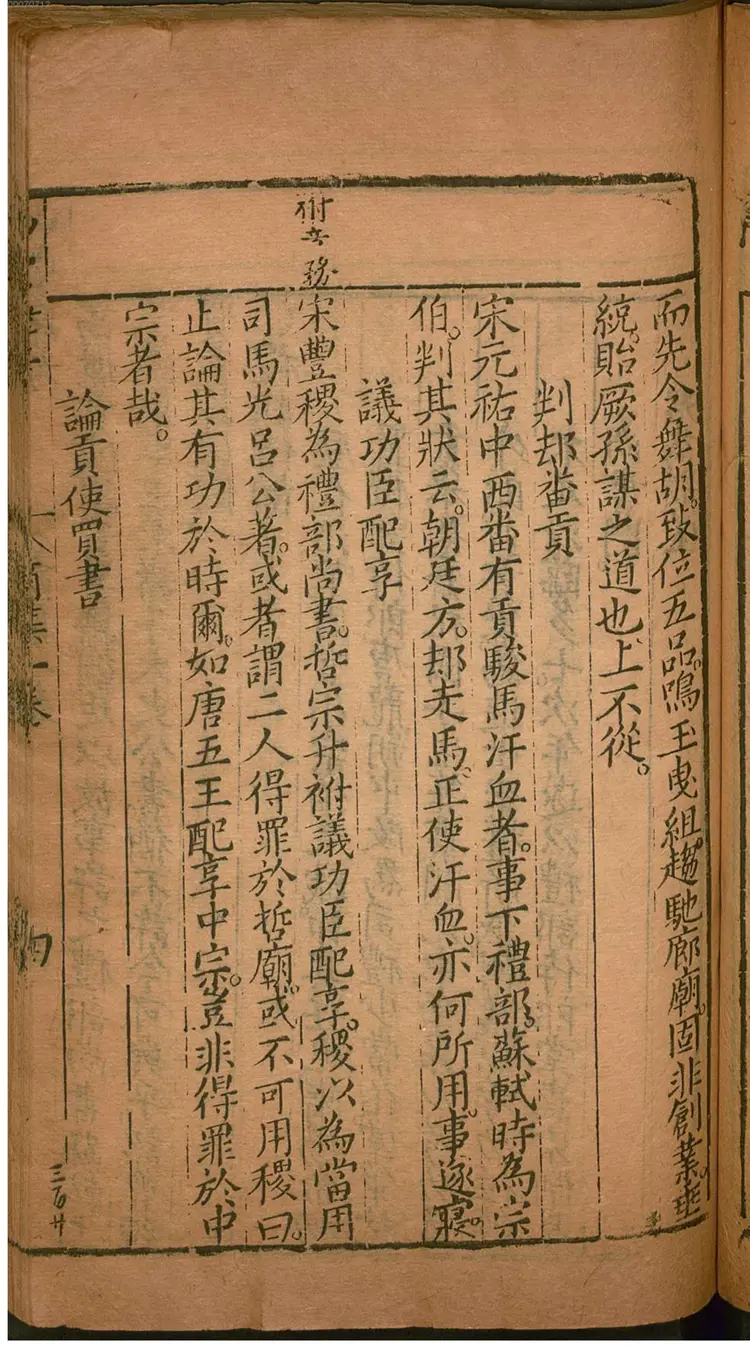 而先令舞胡。致位五品。鳴玉曳組。趨馳廊廟。固非創業。垂
統。貽厥孫謀之道也。上不從。
判却番貢
宋元祐中西番有貢駿馬汗血者。事下禮部。蘇軾時為宗
伯。判其狀云。朝廷方。却走馬。正使汗血。亦何所用。事遂寢。
議功臣配享
宋豐稷為禮部尚書。哲宗升祔議功臣配享。稷以為當用
司馬光呂公著。或者謂二人得罪於哲廟。或不可用稷曰。
止論其有功於時爾。如唐五王配享中宗。豈非得罪於中
宗者哉。
論貢使買書
一卷
四
三百廿